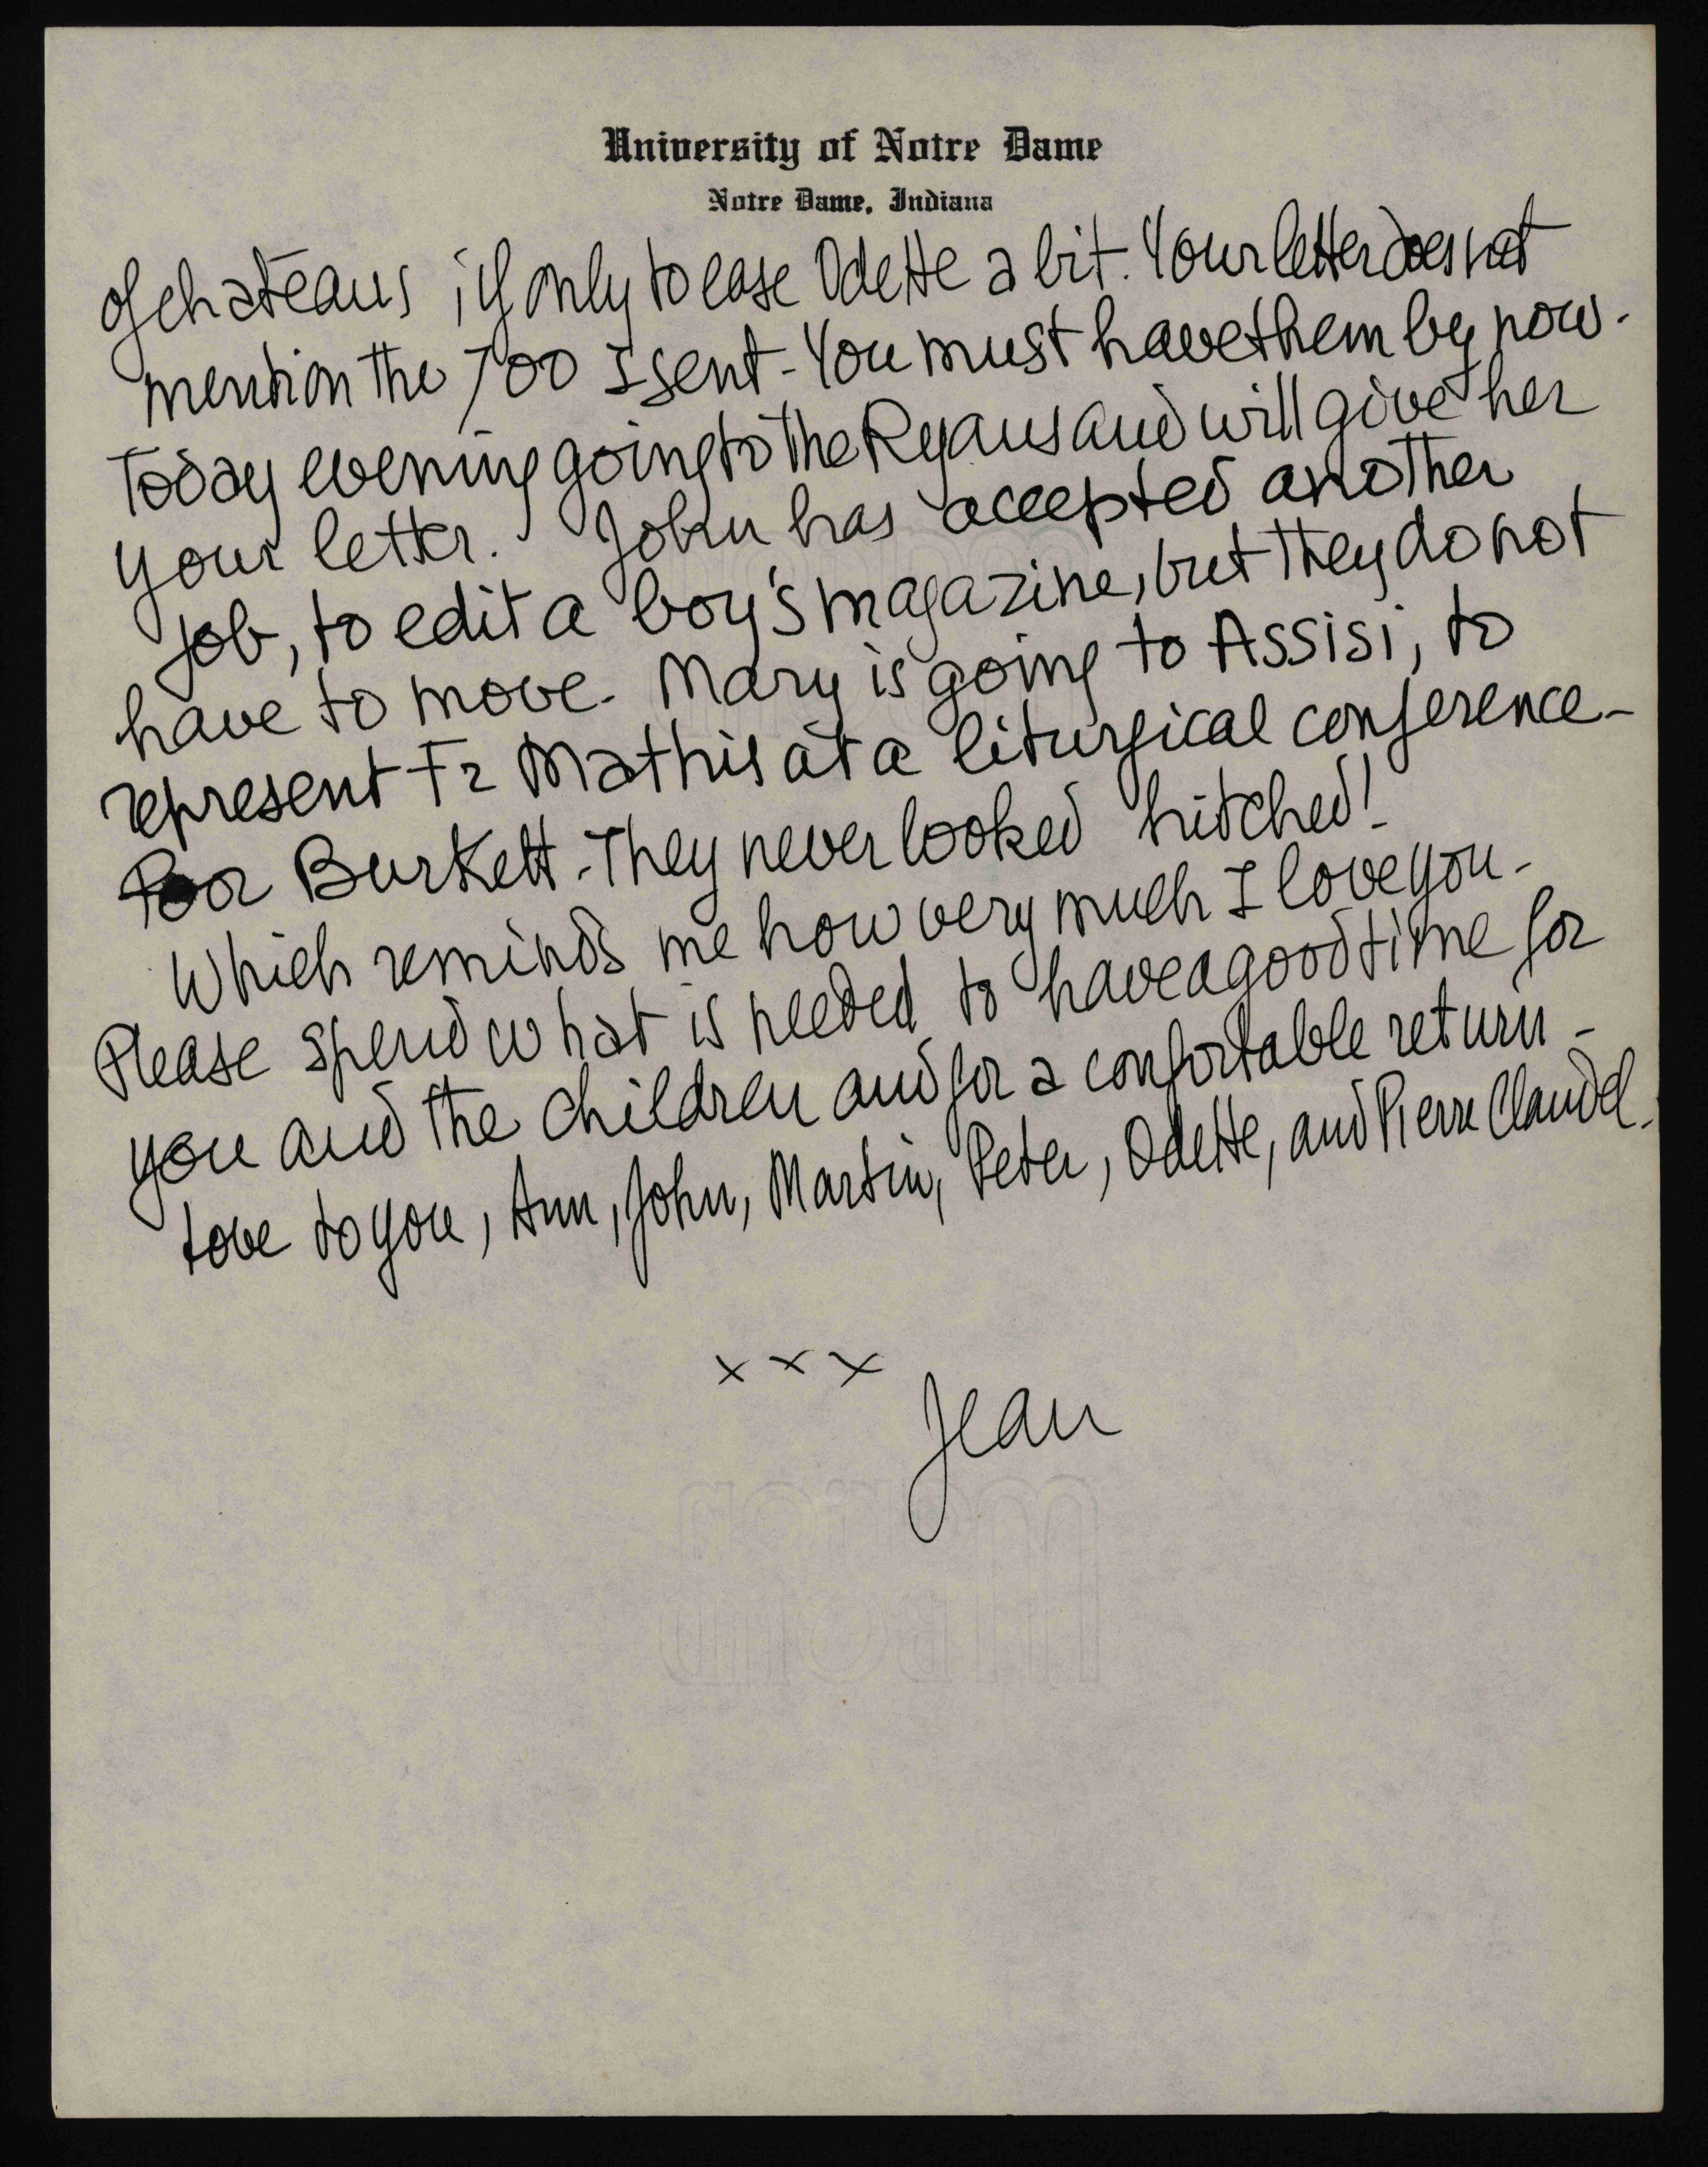 University of Notre Dame
Notre Dame, Indiana
of chateaus, if only to ease Odette a bit. Your letter does not
mention the 700 I sent - You must have them by now.
Today evening going to the Ryans and will give her
your letter. John has accepted another
job, to edit a boy's magazine, but they do not
have to move. Mary is going to Assisi, to
represent Fr Mathis at a liturgical conference -
Poor Burkett. They never looked hitched!
Which reminds me how very much I love you.
Please spend what is needed to have a good time for
you and the children and for a confortable return -
Love to you, Ann, John, Martin, Peter, Odette, and Pierre Claudel.
x x x
Jean